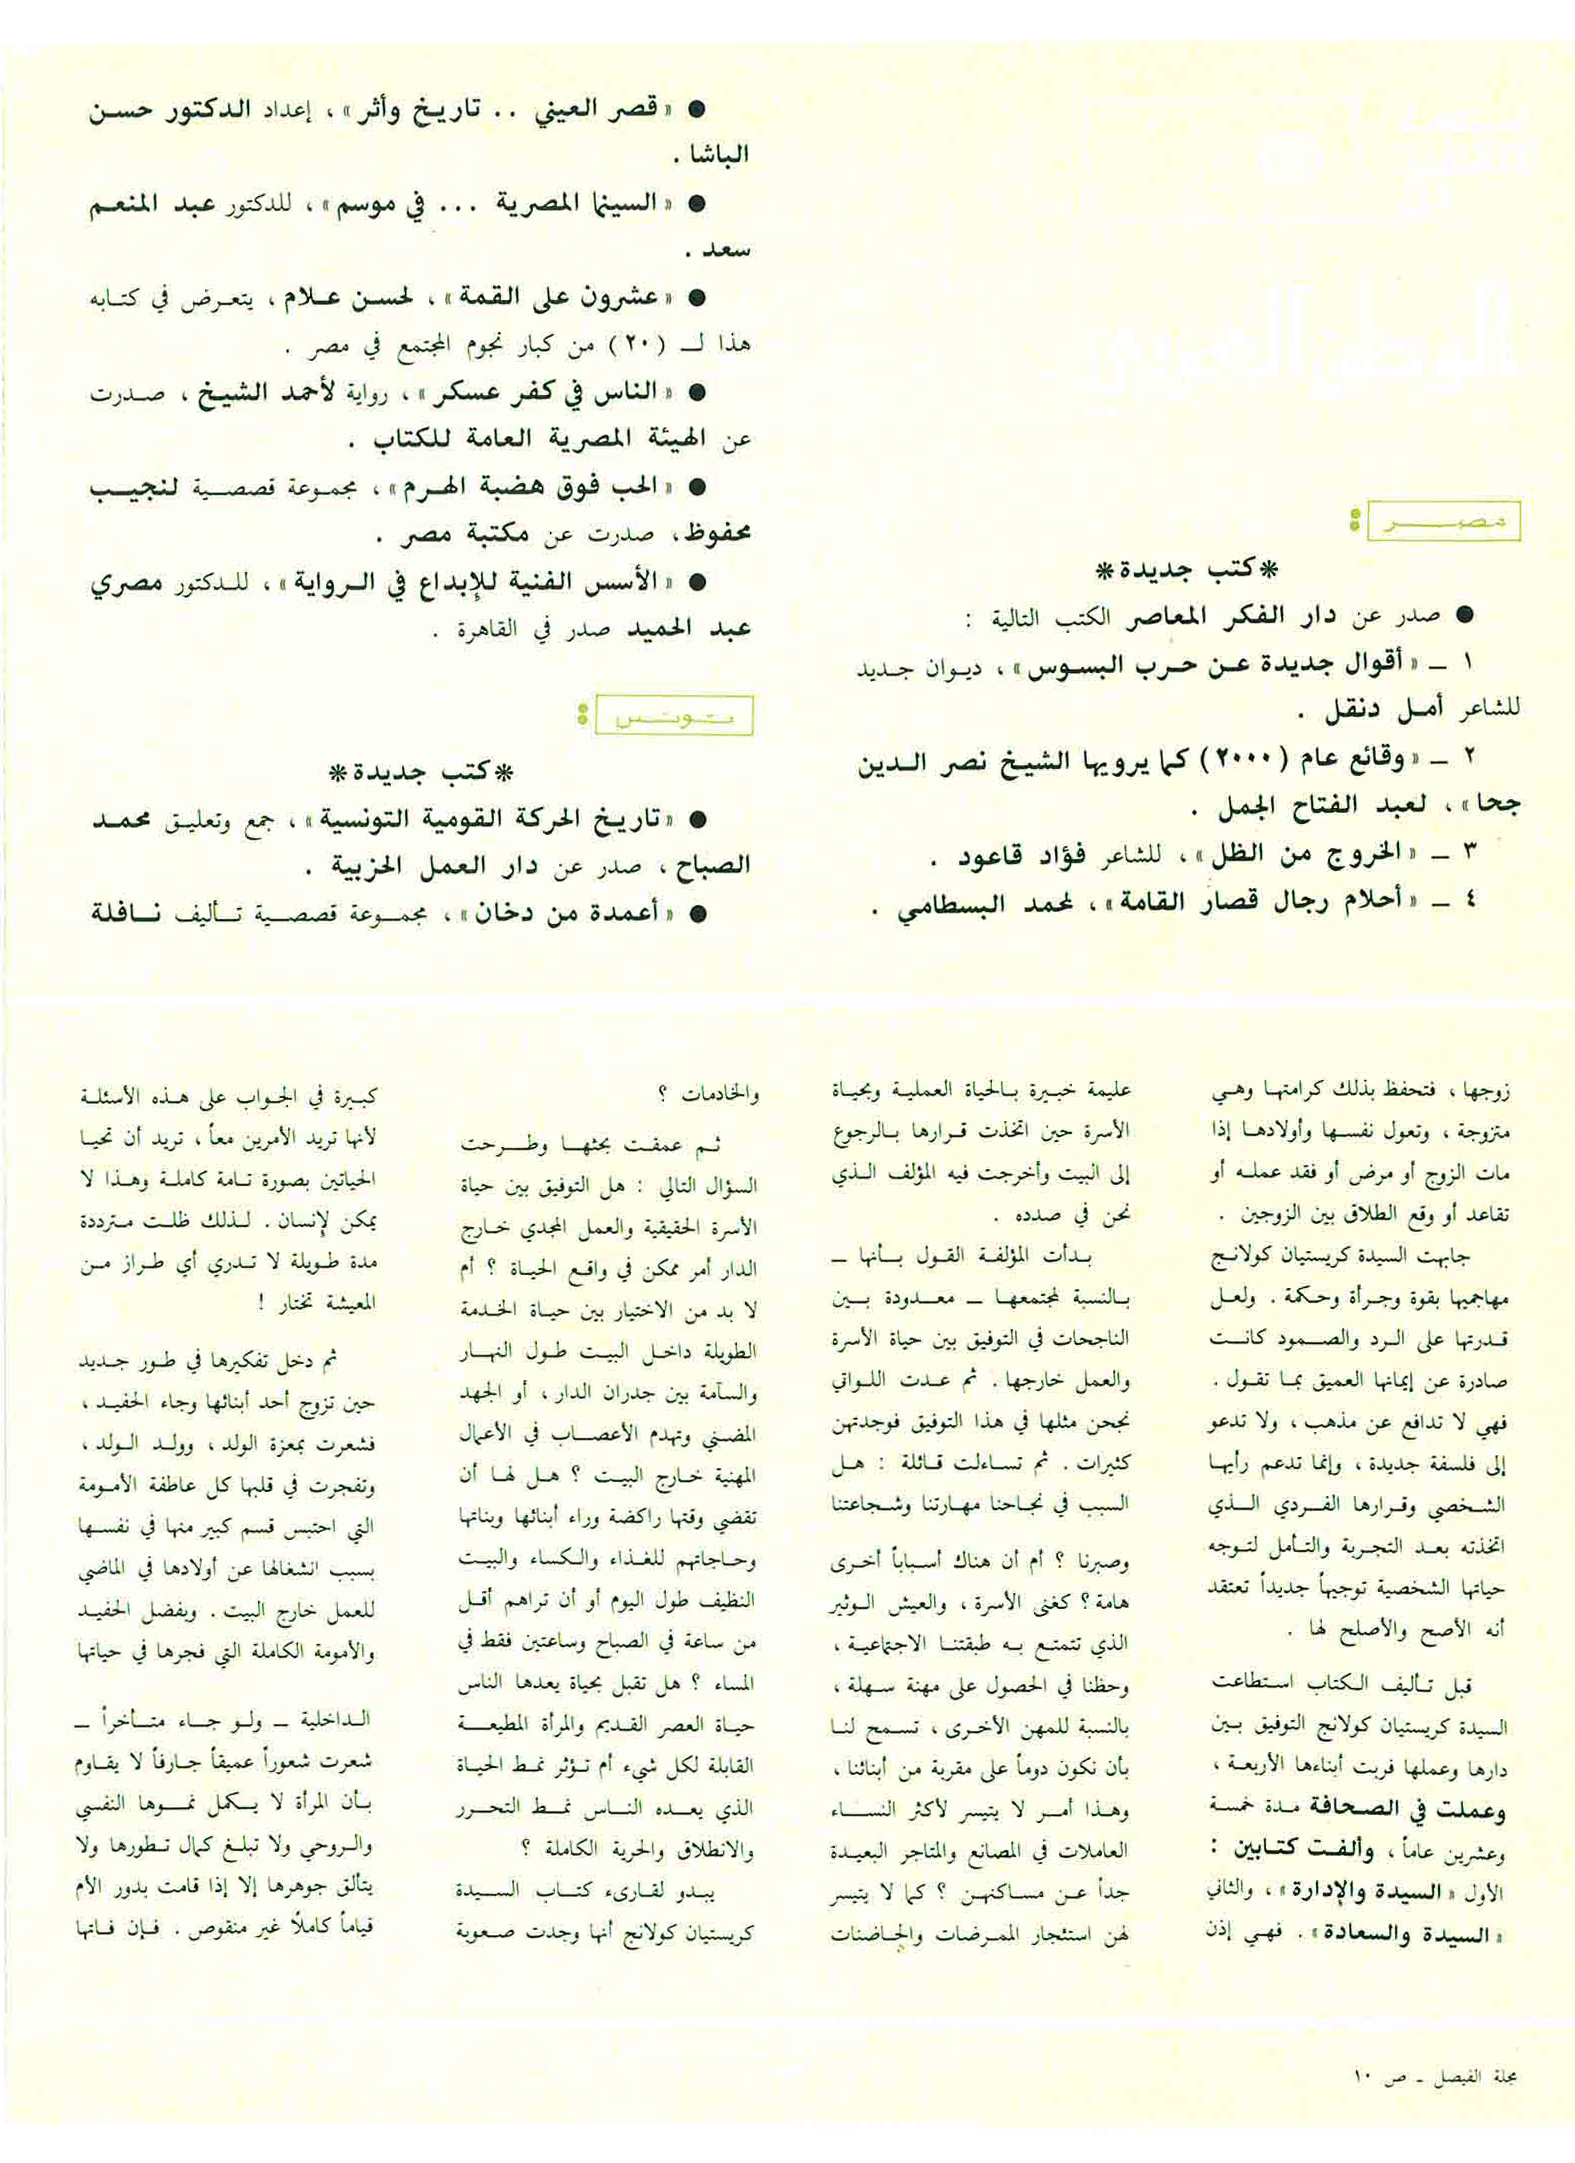 مصر :
*كتب جديدة*
● صدر عن دار الفكر المعاصر الكتب التالية :
١ ـ « أقوال جديدة عن حرب البسوس » ، ديوان جديد
للشاعر أمل دنقل .
٢ ـ « وقائع عام (٢٠٠٠) كما يرويها الشيخ نصر الدين
جحا » ، لعبد الفتاح الجمل .
٣ ـ « الخروج من الظل » ، للشاعر فؤاد قاعود .
٤ ـ « أحلام رجال قصار القامة » ، لمحمد البسطامي .
● « قصر العيني .. تاريخ وأثر » ، إعداد الدكتور حسن
الباشا .
● « السينما المصرية ... في موسم » ، للدكتور عبد المنعم
سعد .
● « عشرون على القمة » ، لحسن علام ، يتعرض في كتابه
هذا لـ (٢٠) من كبار نجوم المجتمع في مصر .
● « الناس في كفر عسكر » ، رواية لأحمد الشيخ ، صدرت
عن الهيئة المصرية العامة للكتاب .
● « الحب فوق هضبة الهرم » ، مجموعة قصصية لنجيب
محفوظ ، صدرت عن مكتبة مصر .
● « الأسس الفنية للإبداع في الرواية » ، للدكتور مصري
عبد الحميد صدر في القاهرة .
تونس :
*كتب جديدة*
● « تاريخ الحركة القومية التونسية » ، جمع وتعليق محمد
الصباح ، صدر عن دار العمل الحزبية .
● « أعمدة من دخان » ، مجموعة قصصية تأليف نافلة
زوجها ، فتحفظ بذلك كرامتها وهي
متزوجة ، وتعول نفسها وأولادها إذا
مات الزوج أو مرض أو فقد عمله أو
تقاعد أو وقع الطلاق بين الزوجين .
جابهت السيدة كريستيان كولانج
مهاجميها بقوة وجرأة وحكمة . ولعل
قدرتها على الرد والصمود كانت
صادرة عن إيمانها العميق بما تقول .
فهي لا تدافع عن مذهب ، ولا تدعو
إلى فلسفة جديدة ، وإنما تدعم رأيها
الشخصي وقرارها الفردي الذي
اتخذته بعد التجربة والتأمل لتوجه
حياتها الشخصية توجيهاً جديداً تعتقد
أنه الأصح والأصلح لها .
قبل تأليف الكتاب استطاعت
السيدة كريستيان كولانج التوفيق بين
دارها وعملها فربت أبناءها الأربعة ،
وعملت في الصحافة مدة خمسة
وعشرين عاماً ، وألفت كتابين :
الأول « السيدة والإدارة » ، والثاني
« السيدة والسعادة » . فهي إذن
عليمة خبيرة بالحياة العملية وبحياة
الأسرة حين اتخذت قرارها بالرجوع
إلى البيت وأخرجت فيه المؤلف الذي
نحن في صدده .
بدأت المؤلفة القول بأنها ـ
بالنسبة لمجتمعها ـ معدودة بين
الناجحات في التوفيق بين حياة الأسرة
والعمل خارجها . ثم عدت اللواتي
نجحن مثلها في هذا التوفيق فوجدتهن
كثيرات . ثم تساءلت قائلة : هل
السبب في نجاحنا مهارتنا وشجاعتنا
وصبرنا ؟ أم أن هناك أسباباً أخرى
هامة ؟ كغنى الأسرة ، والعيش الوثير
الذي تتمتع به طبقتنا الاجتماعية ،
وحظنا في الحصول على مهنة سهلة ،
بالنسبة للمهن الأخرى ، تسمح لنا
بأن نكون دوماً على مقربة من أبنائنا ،
وهذا أمر لا يتيسر لأكثر النساء
العاملات في المصانع والمتاجر البعيدة
جداً عن مساكنهن ؟ كما لا يتيسر
لهن استئجار الممرضات والحاضنات
والخادمات ؟
ثم عمقت بحثها وطرحت
السؤال التالي : هل التوفيق بين حياة
الأسرة الحقيقية والعمل المجدي خارج
الدار أمر ممكن في واقع الحياة ؟ أم
لا بد من الاختيار بين حياة الخدمة
الطويلة داخل البيت طول النهار
والسآمة بين جدران الدار ، أو الجهد
المضني وتهدم الأعصاب في الأعمال
المهنية خارج البيت ؟ هل لها أن
تقضي وقتها راكضة وراء أبنائها وبناتها
وحاجاتهم للغذاء والكساء والبيت
النظيف طول اليوم أو أن تراهم أقل
من ساعة في الصباح وساعتين فقط في
المساء ؟ هل تقبل بحياة يعدها الناس
حياة العصر القديم والمرأة المطيعة
القابلة لكل شيء أم تؤثر نمط الحياة
الذي يعده الناس نمط التحرر
والانطلاق والحرية الكاملة ؟
يبدو لقارىء كتاب السيدة
كريستيان كولانج أنها وجدت صعوبة
كبيرة في الجواب على هذه الأسئلة
لأنها تريد الأمرين معاً ، تريد أن تحيا
الحياتين بصورة تامة كاملة وهذا لا
يمكن لإنسان . لذلك ظلت مترددة
مدة طويلة لا تدري أي طراز من
المعيشة تختار !
ثم دخل تفكيرها في طور جديد
حين تزوج أحد أبنائها وجاء الحفيد ،
فشعرت بمعزة الولد ، وولد الولد ،
وتفجرت في قلبها كل عاطفة الأمومة
التي احتبس قسم كبير منها في نفسها
بسبب انشغالها عن أولادها في الماضي
للعمل خارج البيت . وبفضل الحفيد
والأمومة الكاملة التي فجرها في حياتها
الداخلية ـ ولو جاء متأخراً ـ
شعرت شعوراً عميقاً جارفاً لا يقاوم
بأن المرأة لا يكمل نموها النفسي
والروحي ولا تبلغ كمال تطورها ولا
يتألق جوهرها إلا إذا قامت بدور الأم
قياماً كاملاً غير منقوص . فإن فاتها
مجلة الفيصل ـ ص ١٠